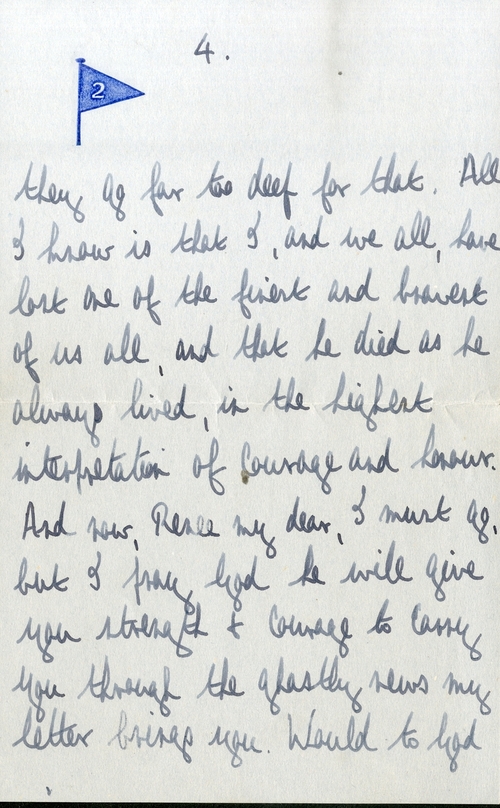 4.
2
they go far too deep for that. All
I know is that I, and we all, have
lost one of the finest and bravest
of us all, and that he died as he
always lived, in the highest
interpretation of Courage and honour.
And now, Renee my dear, I must go,
but I pray God he will give
you strength & Courage to Carry
you through the ghastly news my
letter brings you. Would to God